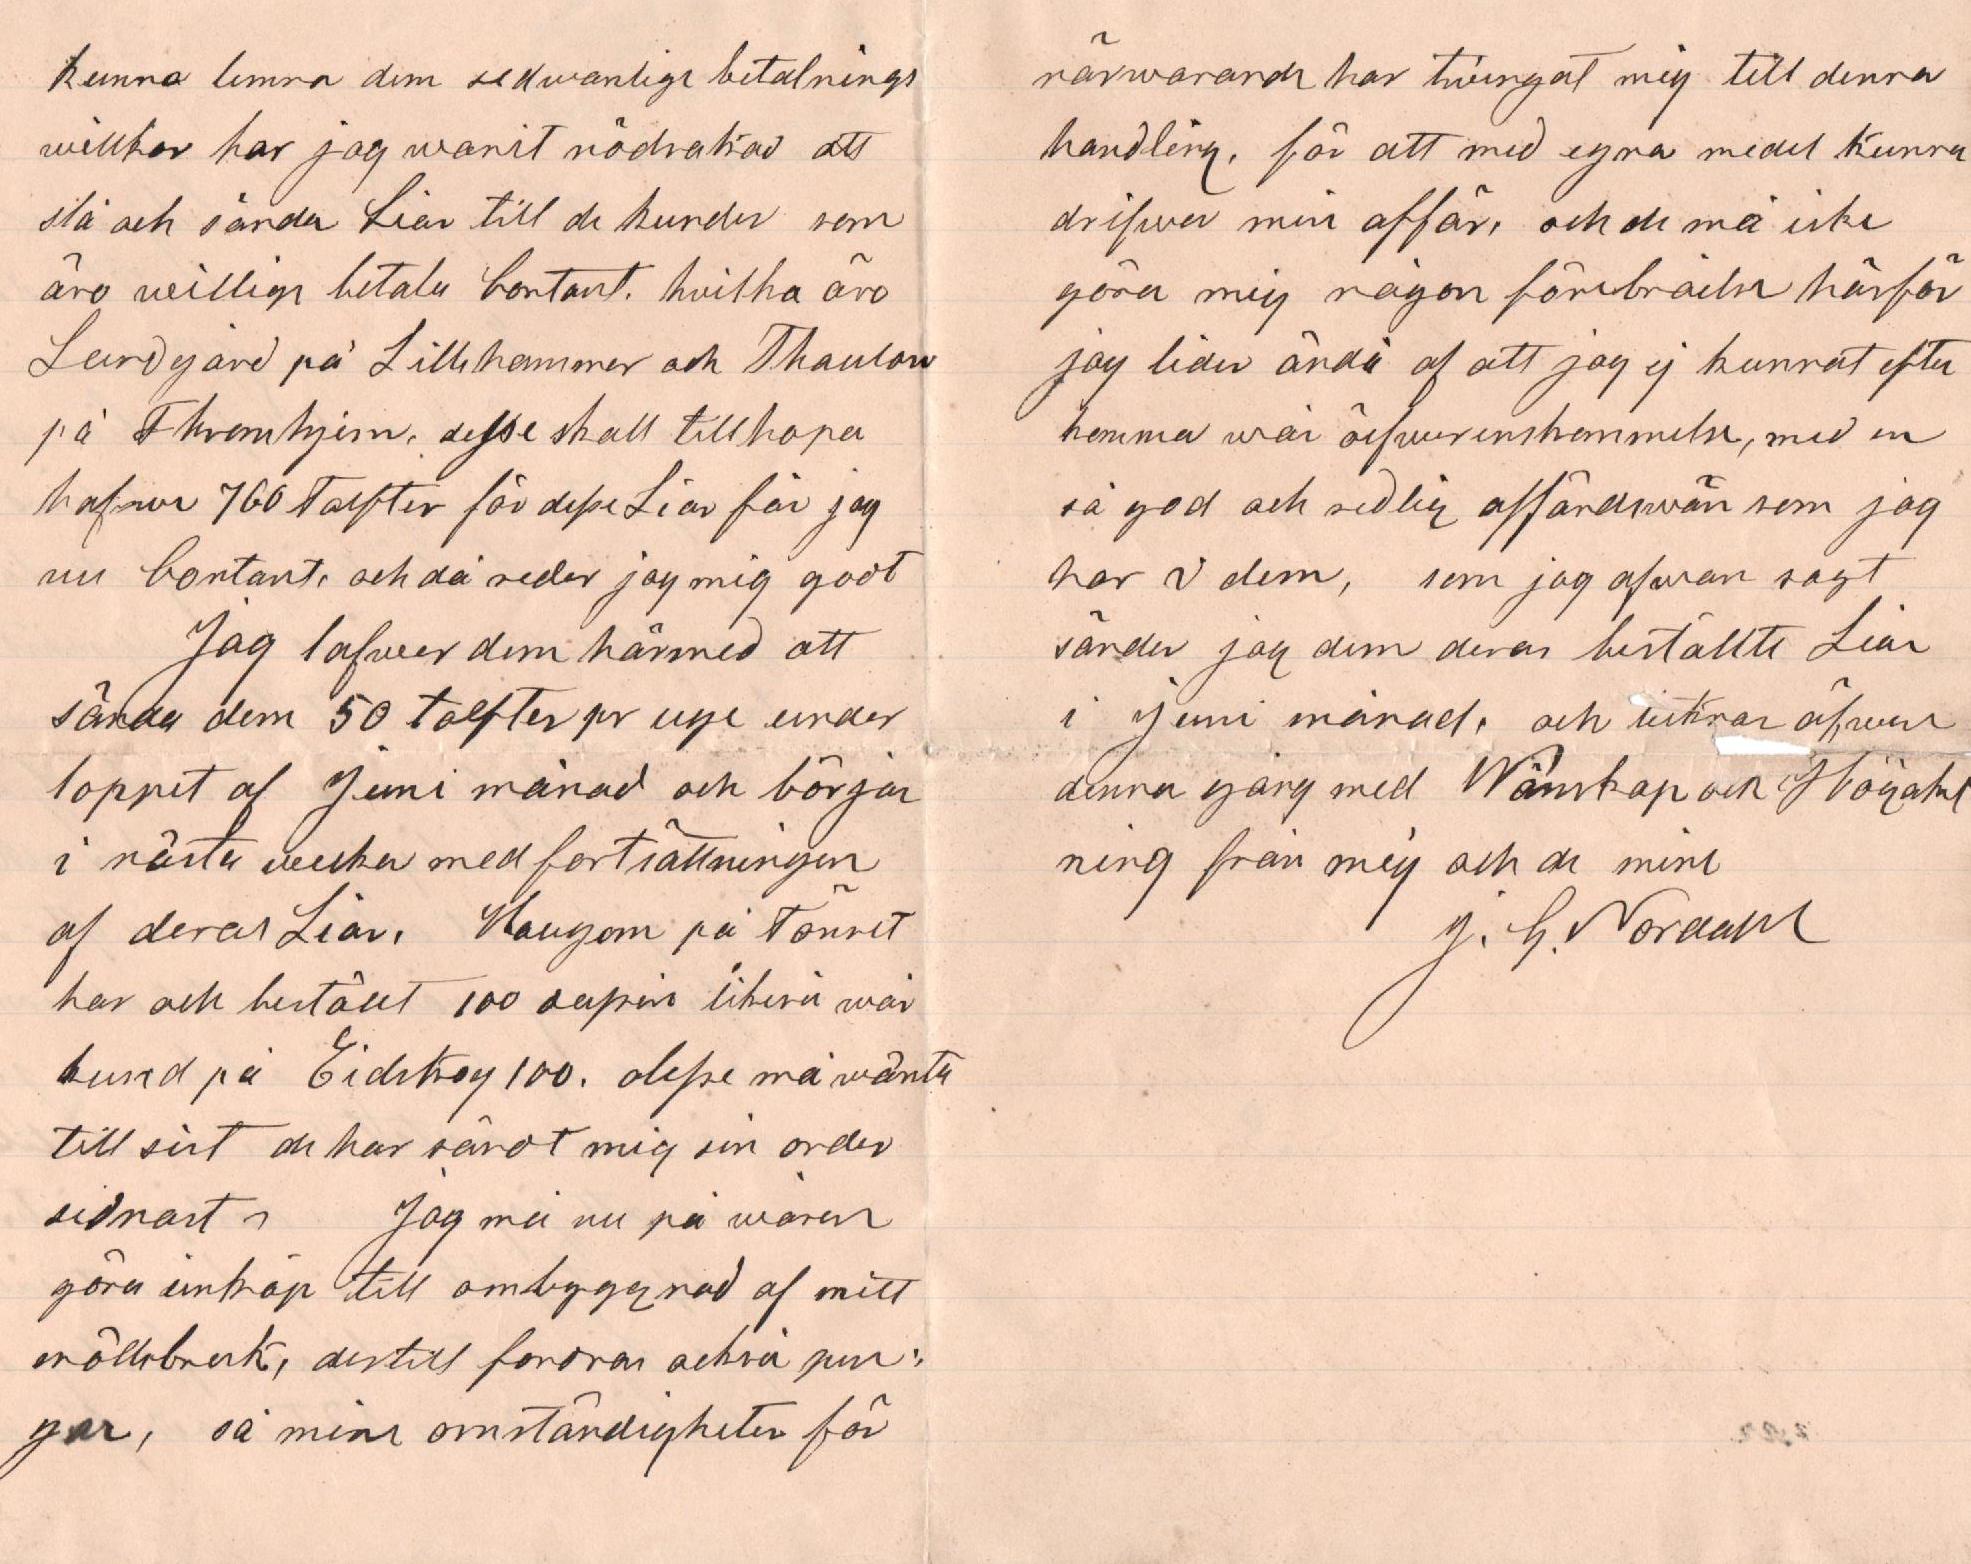 kunna lemna dem sedwanliga betalnings
willkor har jag warit nödsakad att
slå och sända Liar till de kunder som
äro willige betala Contant. hvilka äro
Lundgård på Lillehammer och Thaulow
på Thronhjem. desse skall tillhopa
hafwa 760 Tolfter för desse Liar får jag
nu Contant. och då reder jag mig godt
Jag lofwer dem härmed att
sända dem 50 tolfter pr uge under
loppet af Juni månad och börjar
i nästa wecka med fortsättningen
af deras Liar. Haugom på Tönset
har och bestält 100 dusin likeså wår
kund på Eidskog 100. desse må wänta
till sist de har sändt mig sin order
sidnast Jag må nu på wåren
göra inköp till ombyggnad af mitt
möllebruk, dertill fordras också pen:
gar, så mina omständigheter för
närwarande har twingat mig till denna
handling. för att med egna medel kunna
drifwa min affär, och de må icke
göra mig någon förebråelse härför
jag lider ändå af att jag ej kunnat efter
komma wår öfwerenskommelse, med en
så god och redlig affärdswän som jag
har i dem, som jag ofwan sagt
sänder jag dem deras beställte Liar
i Juni månad. och tecknar äfwen
denna gång med Wänskap och Högakt
ning från mig och de mina
J. G. Nordahl